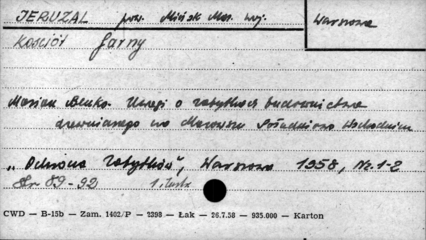 JERUZAL pow. Mińsk Maz. woj. Warszawa
Kościół farny
Marian Benko. Uwagi o zabytkach budownictwa
drewnianego na Mazowszu Południowo Wschodnim
„Ochrona Zabytków", Warszawa 1958, Nr. 1-2
Str 89-92
CWD — B-15b — Zam. 1402/P — 2398 — Łak — 26.7.58 — 935.000 — Karton